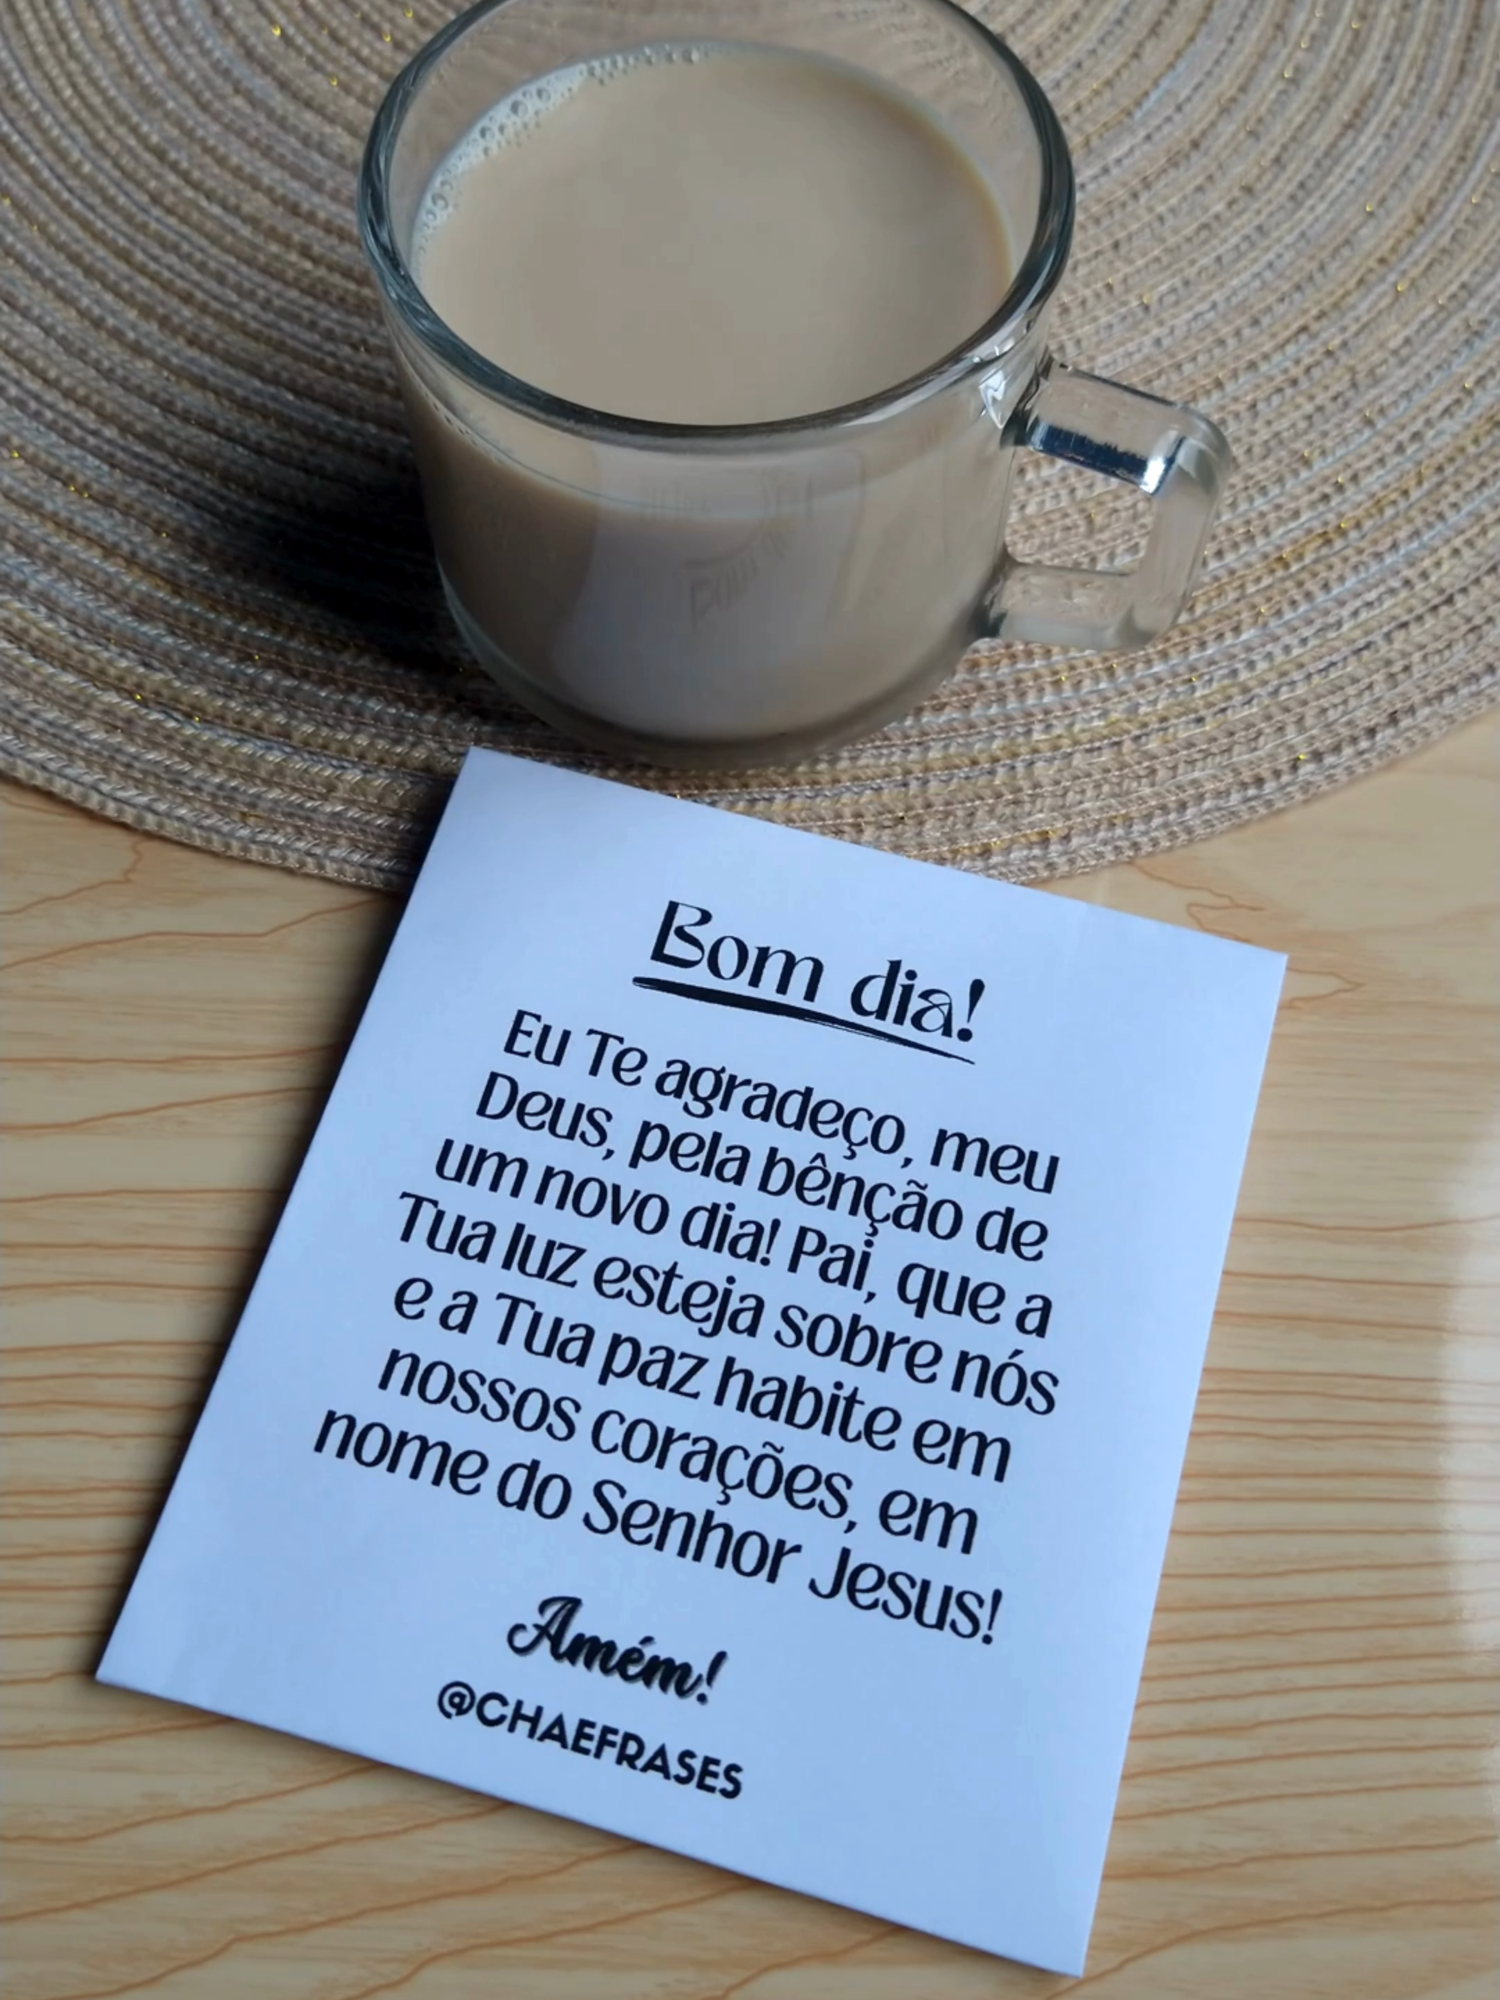 Bom dia!
Eu Te agradeço, meu
Deus, pela bênção de
um novo dia! Pai, que a
Tua luz esteja sobre nós
e a Tua paz habite em
nossos corações, em
nome do Senhor Jesus!
Amém!
@CHAEFRASES